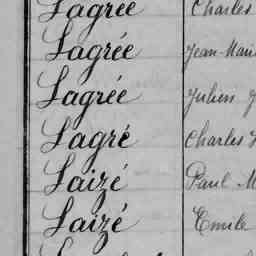 Lagrée Charles
Lagrée Jean-Marie
Lagrée Julien
Lagré Charles
Laizé Paul
Laizé Emile